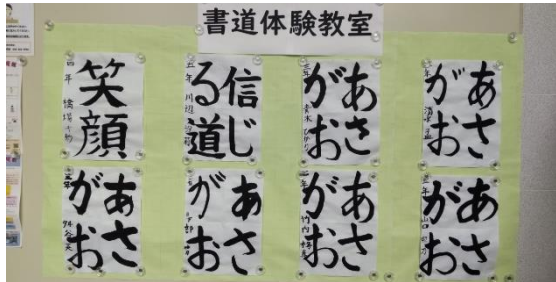 書道体験教室
笑顔
四年
信じ
る道
五年
あさ
がお
三年
あさ
がお
あさ
がお
あさ
がお
あさ
がお
竹内
あさ
がお
三年 山口